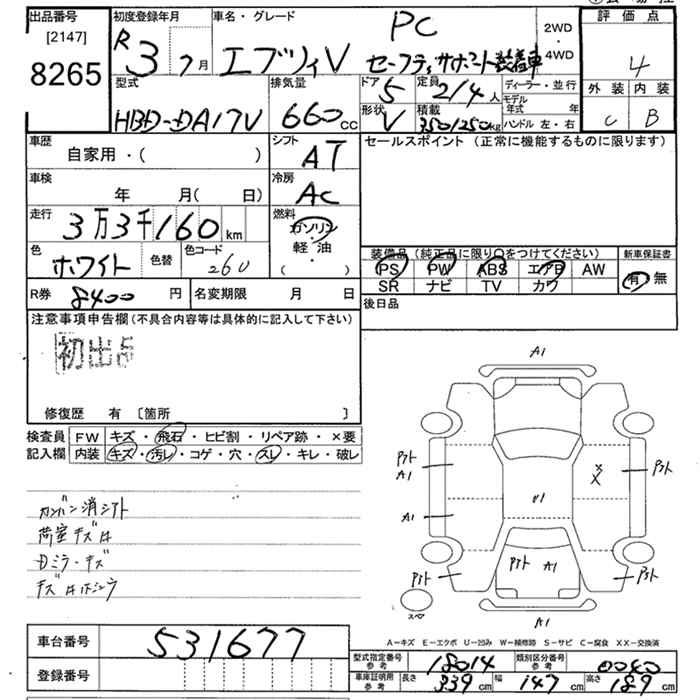 出品番号
[2147]
8265
初度登録年月
R 3 年 7 月
車名・グレード
PC
エブリィV セーフティサポート装着車
2WD
・
4WD
評価点
4
外装 内装
C B
型式
HBD-DA17V
排気量
660 cc
ドア 5
定員 2/4 人
形状 V
積載 350/250 kg
ディーラー・並行
モデル年式 年
ハンドル 左・右
車歴
自家用・( )
シフト
AT
車検
年 月(日 )
冷房
AC
走行
3万3千160 km
燃料
ガソリン
・
軽油
( ・ )
色
ホワイト
色替
色コード
26U
R券 8400 円
名変期限 月 日
セールスポイント(正常に機能するものに限ります)
装備品(純正品に限り○をつけてください)
PS PW ABS エアB AW
SR ナビ TV カワ
新車保証書
有・無
後日品
注意事項申告欄(不具合内容等は具体的に記入して下さい)
初出品
修復歴 有 〔箇所 〕
検査員記入欄
FW キズ・飛石・ヒビ割・リペア跡・×要
内装 キズ・汚レ・コゲ・穴・スレ・キレ・破レ
カンバン消シアト
荷室キズ凹
Dミラーキズ
A1
アト
A1
A1
アト
X
X
アト
U1
アト A1
アト
スペア
A1
A-キズ E-エクボ U-凹み W-補修跡 S-サビ C-腐食 XX-交換済
車台番号
531677
登録番号
型式指定番号 参考 18014
類別区分番号 参考 0040
車庫証明用 参考 長さ 339 cm 幅 147 cm 高さ 189 cm